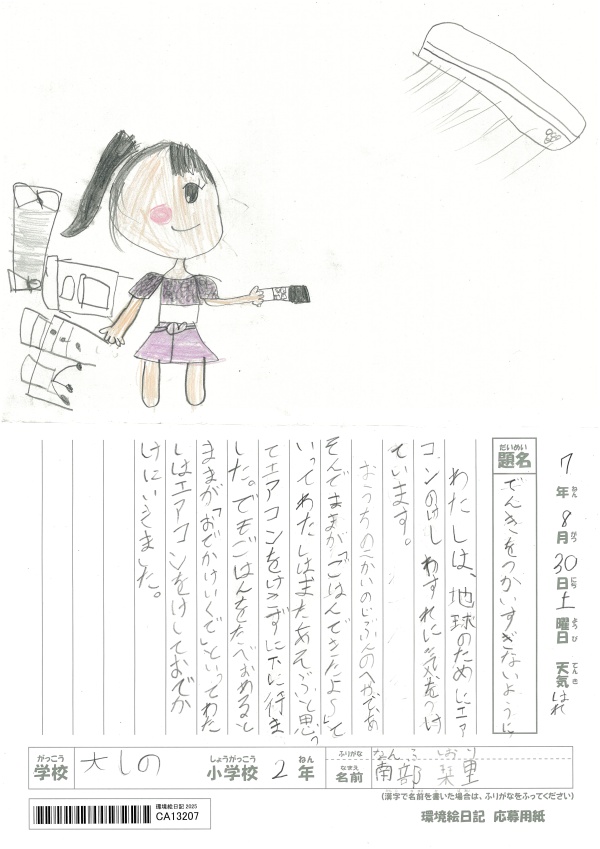 7年8月30日土曜日 天気はれ
ねん がつ にち ようび てんき
だいめい
題名
でんきをつかいすぎないように
わたしは、地球のためにエア
コンのけしわすれに気をつけ
ています。
おうちの二かいのじぶんのへやであ
そんでままが「ごはんできたよ〜」て
いってわたしはまたあそぶと思っ
てエアコンをけさずに下に行きま
した。でもごはんをたべおわると
ままが「おでかけいくで」といってわた
しはエアコンをけしておでか
けにいきました。
がっこう
学校
大しの
しょうがっこう
小学校
2
ねん
年
ふりがな
なんぶ しおり
なまえ
名前
南部 栞里
(漢字で名前を書いた場合は、ふりがなをふってください)
環境絵日記 2025
CA13207
環境絵日記 応募用紙